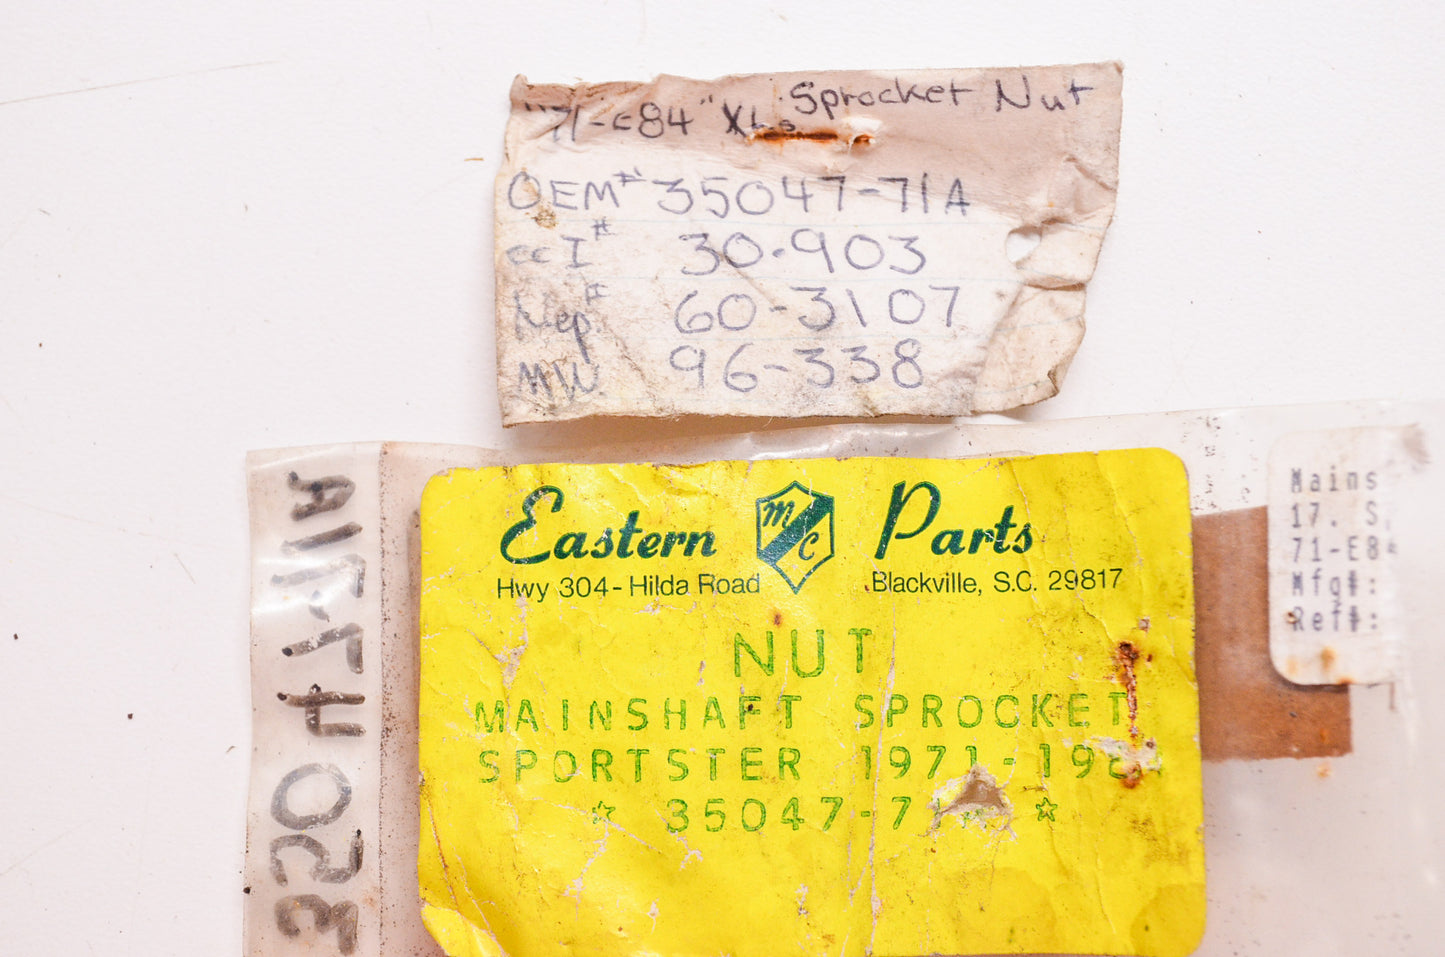 Sprocket Nut
"71-E84" XLs
OEM# 35047-71A
CCI# 30-903
Nep# 60-3107
MW 96-338
35047-71A
Eastern MC Parts
Hwy 304 - Hilda Road Blackville, S.C. 29817
NUT
MAINSHAFT SPROCKET
SPORTSTER 1971-198
☆ 35047-71 ☆
Mains
17. S.
71-E8
Mfg#:
Ref#: